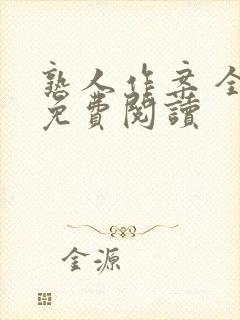 熟人作案全
免費閱讀
金源